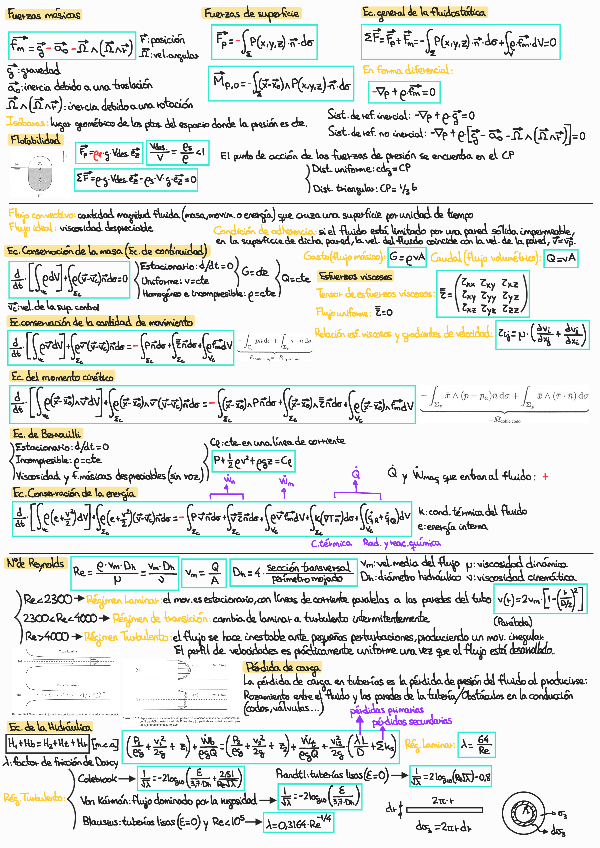 Fuerzas másicas
f⃗m = g⃗ - a⃗o - Ω⃗∧(Ω⃗∧r⃗)
r⃗: posición
Ω⃗: vel. angular
g⃗: gravedad
a⃗o: inercia debido a una traslación
Ω⃗∧(Ω⃗∧r⃗): inercia debido a una rotación
Isóbaras: lugar geométrico de los ptos. del espacio donde la presión es cte.
Fuerzas de superficie
F⃗p = -∫Σ P(x,y,z)·n⃗·dσ
M⃗p,o = -∫Σ (x⃗-x⃗o)∧P(x,y,z)·n⃗·dσ
Ec. general de la fluidostática
ΣF⃗ = F⃗p + F⃗m = -∫Σ P(x,y,z)·n⃗·dσ + ∫V ρ·f⃗m·dV = 0
En forma diferencial:
-∇p + ρ·f⃗m = 0
Sist. de ref. inercial: -∇p + ρ·g⃗ = 0
Sist. de ref. no inercial: -∇p + ρ·[g⃗ - a⃗o - Ω⃗∧(Ω⃗∧r⃗)] = 0
Flotabilidad
F⃗p = ρ·g·Vdes·e⃗z
Vdes/V = ρs/ρ < 1
ΣF⃗ = ρ·g·Vdes·e⃗z - ρs·V·g·e⃗z = 0
El punto de acción de las fuerzas de presión se encuentra en el CP
Dist. uniforme: cdg = CP
Dist. triangular: CP = 1/3 b
Flujo convectivo: cantidad magnitud fluida (masa, mov.m. o energía) que cruza una superficie por unidad de tiempo
Flujo ideal: viscosidad despreciable
Condición de adherencia: si el fluido está limitado por una pared sólida impermeable,
en la superficie de dicha pared, la vel. del fluido coincide con la vel. de la pared, v⃗=v⃗p.
Ec. Conservación de la masa (Ec. de continuidad)
d/dt [∫Vc ρdV] + ∫Σc ρ(v⃗-v⃗c)n⃗dσ = 0
Estacionario: d/dt = 0
Uniforme: v = cte
Homogéneo e Incompresible: ρ = cte
G = cte
Q = cte
v⃗c: vel. de la sup. control
Gasto (flujo másico): G = ρvA
Caudal (flujo volumétrico): Q = vA
Esfuerzos viscosos
Tensor de esfuerzos viscosos:
τ̿ = (τxx τxy τxz
τxy τyy τyz
τxz τyz τzz)
Flujo uniforme: τ̿ = 0
Relación esf. viscosos y gradientes de velocidad: τij = μ·(∂vi/∂xj + ∂vj/∂xi)
Ec. conservación de la cantidad de movimiento
d/dt [∫Vc ρv⃗dV] + ∫Σc ρv⃗(v⃗-v⃗c)n⃗dσ = -∫Σc Pn⃗dσ + ∫Σc τ̿n⃗dσ + ∫Vc ρf⃗mdV
Ec. del momento cinético
d/dt [∫Vc ρ(x⃗-x⃗o)∧v⃗dV] + ∫Σc ρ(x⃗-x⃗o)∧v⃗(v⃗-v⃗c)n⃗dσ = -∫Σc (x⃗-x⃗o)∧Pn⃗dσ + ∫Σc (x⃗-x⃗o)∧τ̿n⃗dσ + ∫Vc ρ(x⃗-x⃗o)∧f⃗mdV
Ec. de Bernouilli
Estacionario: d/dt = 0
Incompresible: ρ = cte
Viscosidad y f. másicas despreciables (sin roz.)
Cℓ: cte en una línea de corriente
P + 1/2 ρv² + ρgz = Cℓ
Q̇ y Ẇmaq que entran al fluido: +
Ec. Conservación de la energía
Ẇn Ẇm Q̇
d/dt [∫Vc ρ(e+v²/2)dV] + ∫Σc ρ(e+v²/2)(v⃗-v⃗c)n⃗dσ = -∫Σc Pv⃗n⃗dσ + ∫Σc v⃗τ̿n⃗dσ + ∫Vc ρv⃗f⃗mdV + ∫Σc k(∇T n⃗)dσ + ∫Vc (q̇R + q̇Q)dV
C. térmica Rad. y reac. química
k: cond. térmica del fluido
e: energía interna
Nº de Reynolds
Re = ρ·vm·Dh/μ = vm·Dh/ν
vm = Q/A
Dh = 4·sección transversal/perímetro mojado
vm: vel. media del flujo μ: viscosidad dinámica
Dh: diámetro hidráulico ν: viscosidad cinemática
Re<2300 → Régimen Laminar: el mov. es estacionario, con líneas de corriente paralelas a las paredes del tubo
v(r) = 2vm·[1-(r/(D/2))²]
(Parábola)
2300<Re<4000 → Régimen de transición: cambia de laminar a turbulento intermitentemente.
Re>4000 → Régimen Turbulento: el flujo se hace inestable ante pequeñas perturbaciones, produciendo un mov. irregular.
El perfil de velocidades es prácticamente uniforme una vez que el flujo está desarrollado.
Pérdida de carga
La pérdida de carga en tuberías es la pérdida de presión del fluido al producirse:
Rozamiento entre el fluido y las paredes de la tubería/Obstáculos en la conducción
(codos, válvulas...)
pérdidas primarias
pérdidas secundarias
Ec. de la Hidráulica
H1+HB = H2+Ht+Hr [m.c.a]
(P1/ρg + v1²/2g + z1) + ẆB/ρgQ = (P2/ρg + v2²/2g + z2) + Ẇt/ρgQ + v²/2g·(λL/D + Σks)
Rég. Laminar: λ = 64/Re
λ: factor de fricción de Darcy
Rég. Turbulento:
Colebrook → 1/√λ = -2log10(ε/3,7·Dh + 2,51/Re√λ)
Prandtl: tuberías lisas (ε=0) → 1/√λ = 2log10(Re√λ) - 0,8
Von Kármán: flujo dominado por la rugosidad → 1/√λ = -2log10(ε/3,7·Dh)
Blausius: tuberías lisas (ε=0) y Re<10⁵ → λ = 0,3164·Re^-1/4
2π·r
dr
dσ3 = 2πr·dr
σ3
dσ3